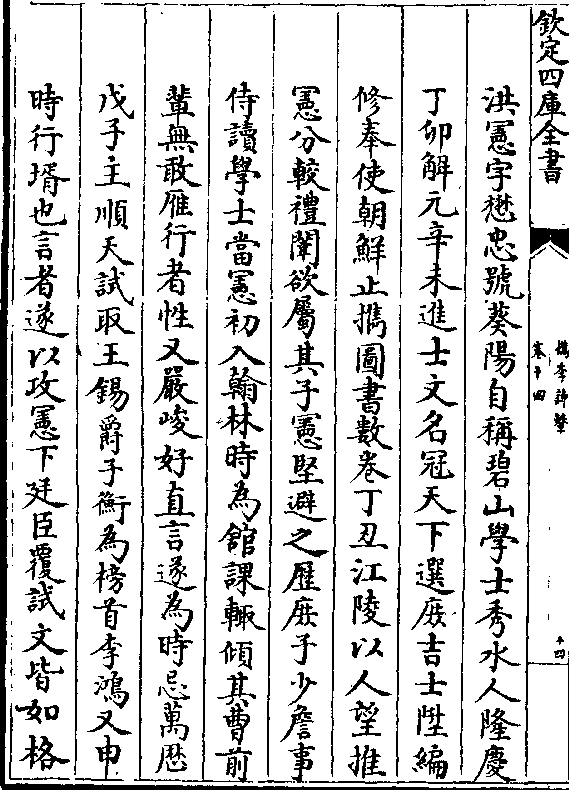 欽定四庫全書
檇李詩繫
卷十四
十四
洪憲字懋忠號葵陽自稱碧山學士秀水人隆慶
丁卯解元辛未進士文名冠天下選庶吉士陞編
修奉使朝鮮止携圖書數卷丁丑江陵以人望推
憲分較禮闈欲屬其子憲堅避之歴庶子少詹事
侍讀學士當憲初入翰林時為館課輙傾其曹前
輩無敢雁行者性又嚴峻好直言遂為時忌萬歴
戊子主順天試取王錫爵子衡為榜首李鴻又申
時行壻也言者遂以攻憲下廷臣覆試文皆如格